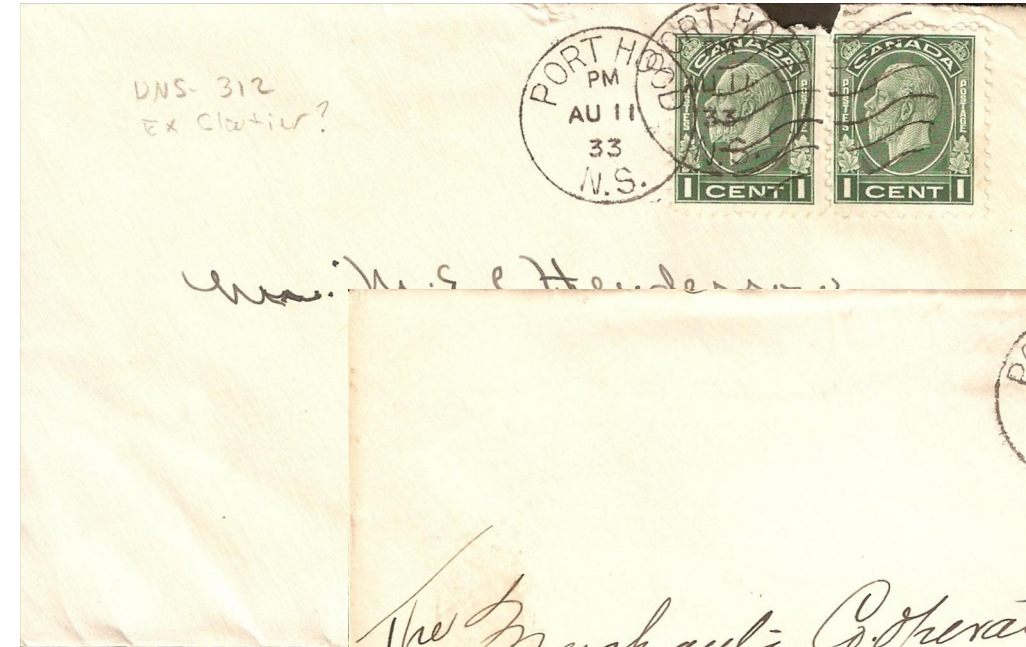 DNS- 312
Ex Cloutier?
PORT HOOD
PM
AU 11
33
N.S.
PORT HOOD
AU 11
33
N.S.
CANADA
POSTES
POSTAGE
1 CENT 1
CANADA
POSTES
POSTAGE
1 CENT 1
Henderson
PO
The Merchants Co.opera